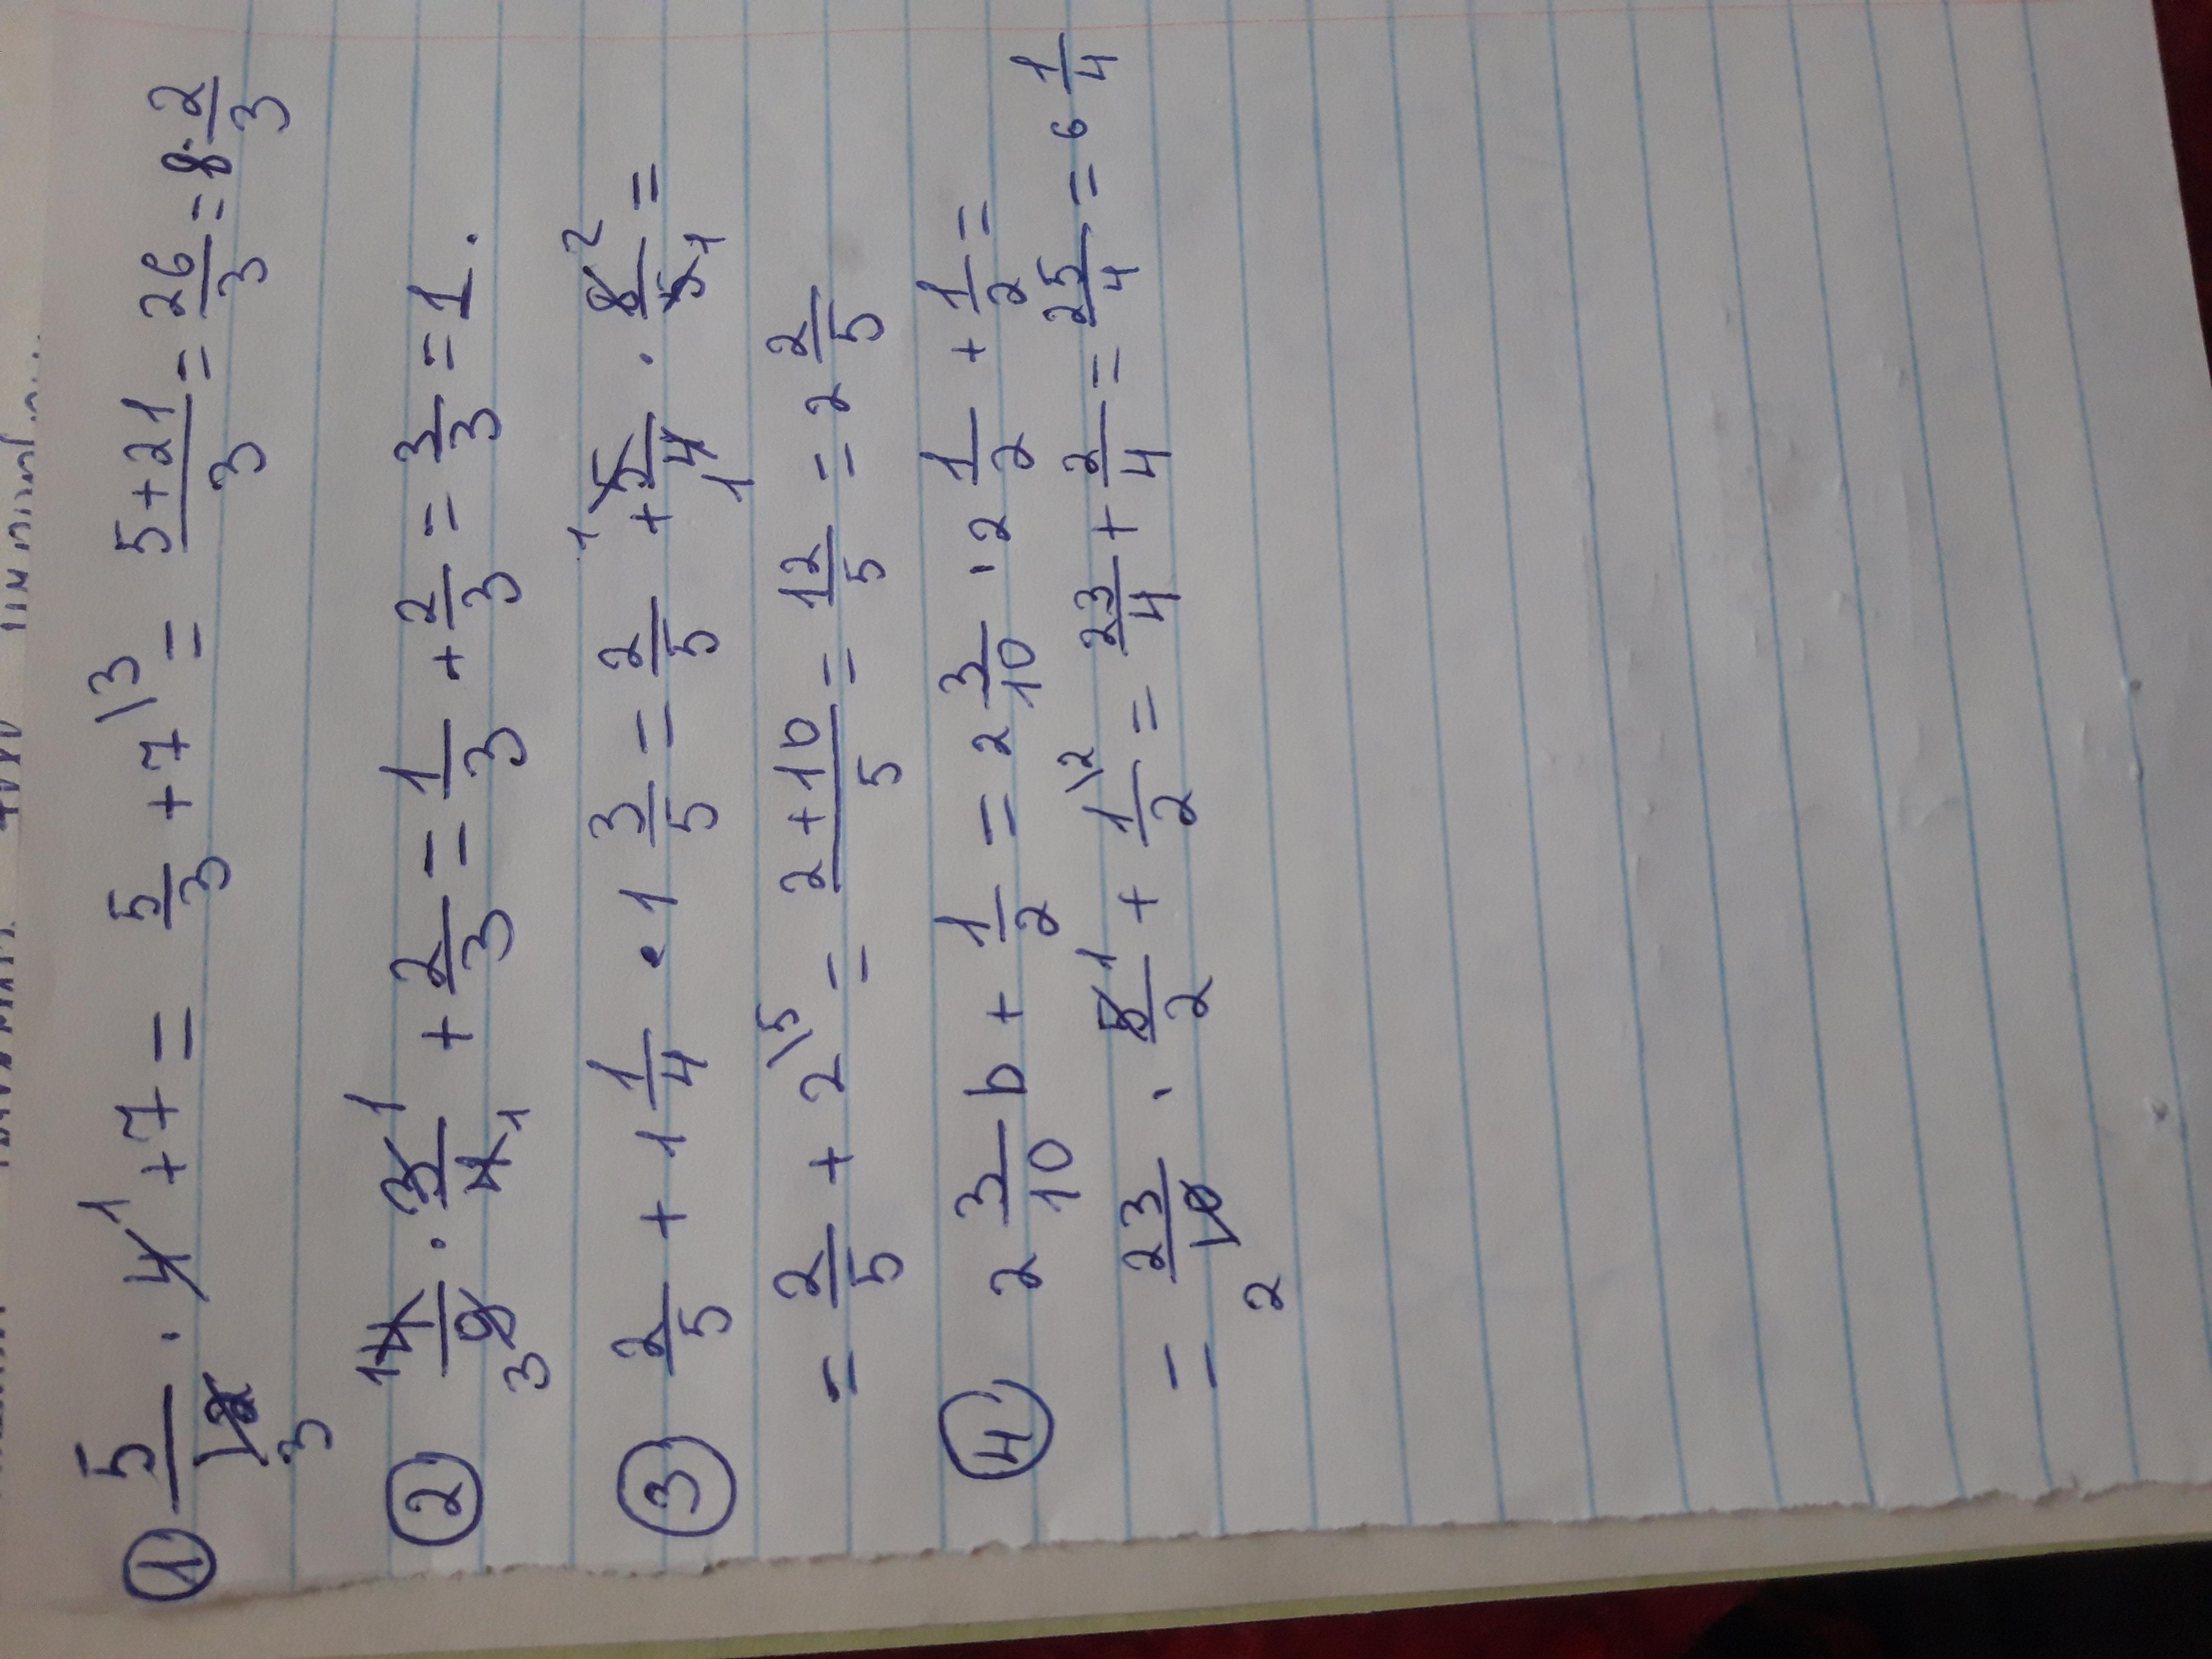 ① 5/12 · 4 1 + 7 = 5/3 + 7\3 = 5+21/3 = 26/3 = 8 2/3
3
② 1 4/9 3 · 3 1/4 1 + 2/3 = 1/3 + 2/3 = 3/3 = 1.
③ 2/5 + 1 1/4 · 1 3/5 = 2/5 + 1 5/4 1 · 8 2/5 1 =
= 2/5 + 2\5 = 2+10/5 = 12/5 = 2 2/5
④ 2 3/10 b + 1/2 = 2 3/10 · 2 1/2 + 1/2 =
= 23/10 2 · 5 1/2 + 1/2\2 = 23/4 + 2/4 = 25/4 = 6 1/4